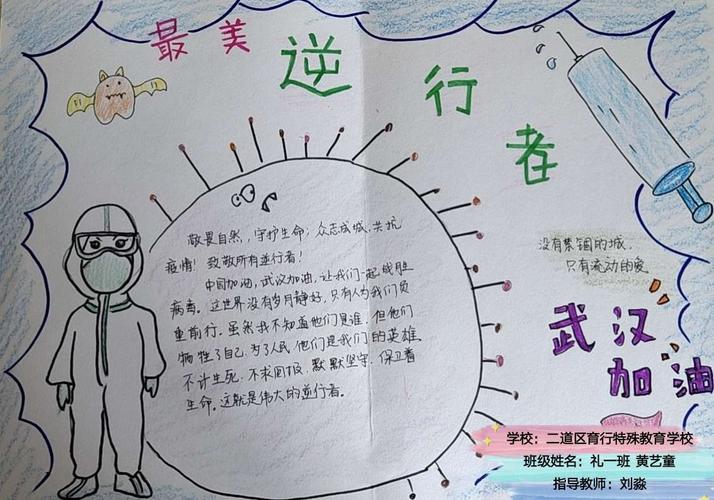 最美逆行者
敬畏自然，守护生命；众志成城，共抗
疫情！致敬所有逆行者！
中国加油，武汉加油，让我们一起战胜
病毒。这世界没有岁月静好，只有人为我们负
重前行。虽然我不知道他们是谁，但他们
牺牲了自己，为了人民，他们是我们的英雄，
不计生死，不求回报，默默坚守，保卫着
生命。这就是伟大的逆行者。
没有禁锢的城，
只有流动的爱。
武汉
加油
学校：二道区育行特殊教育学校
班级姓名：礼一班 黄艺童
指导教师：刘淼